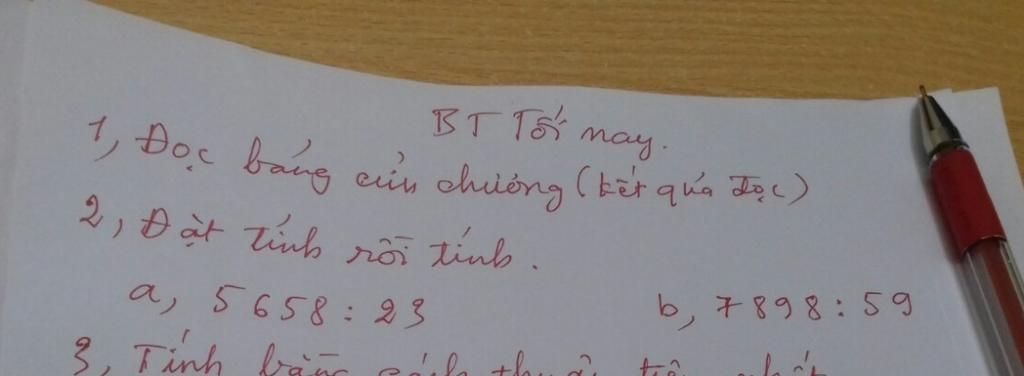 BT Tối nay.
1, Đọc bảng cửu chương (kết quả đọc)
2, Đặt tính rồi tính.
a, 5658 : 23 b, 7898 : 59
3, Tính bằng cách thuận tiện nhất